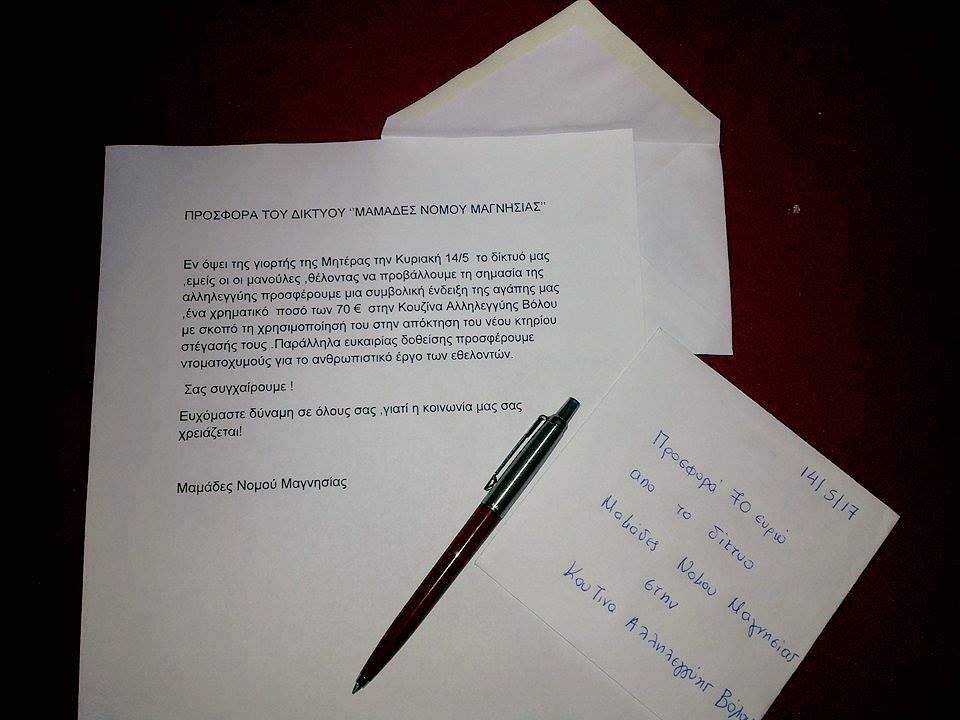 ΠΡΟΣΦΟΡΑ ΤΟΥ ΔΙΚΤΥΟΥ ‘’ΜΑΜΑΔΕΣ ΝΟΜΟΥ ΜΑΓΝΗΣΙΑΣ’’
Εν όψει της γιορτής της Μητέρας την Κυριακή 14/5 το δίκτυό μας
,εμείς οι οι μανούλες ,θέλοντας να προβάλλουμε τη σημασία της
αλληλεγγύης προσφέρουμε μια συμβολική ένδειξη της αγάπης μας
,ένα χρηματικό ποσό των 70 € στην Κουζίνα Αλληλεγγύης Βόλου
με σκοπό τη χρησιμοποίησή του στην απόκτηση του νέου κτηρίου
στέγασής τους .Παράλληλα ευκαιρίας δοθείσης προσφέρουμε
ντοματοχυμούς για το ανθρωπιστικό έργο των εθελοντών.
Σας συγχαίρουμε !
Ευχόμαστε δύναμη σε όλους σας ,γιατί η κοινωνία μας σας
χρειάζεται!
Μαμάδες Νομού Μαγνησίας
14/5/17
Προσφορά 70 ευρώ
απο το δίκτυο
Μαμάδες Νομου Μαγνησίας
στην
Κουζινα Αλληλεγγύης Βόλου